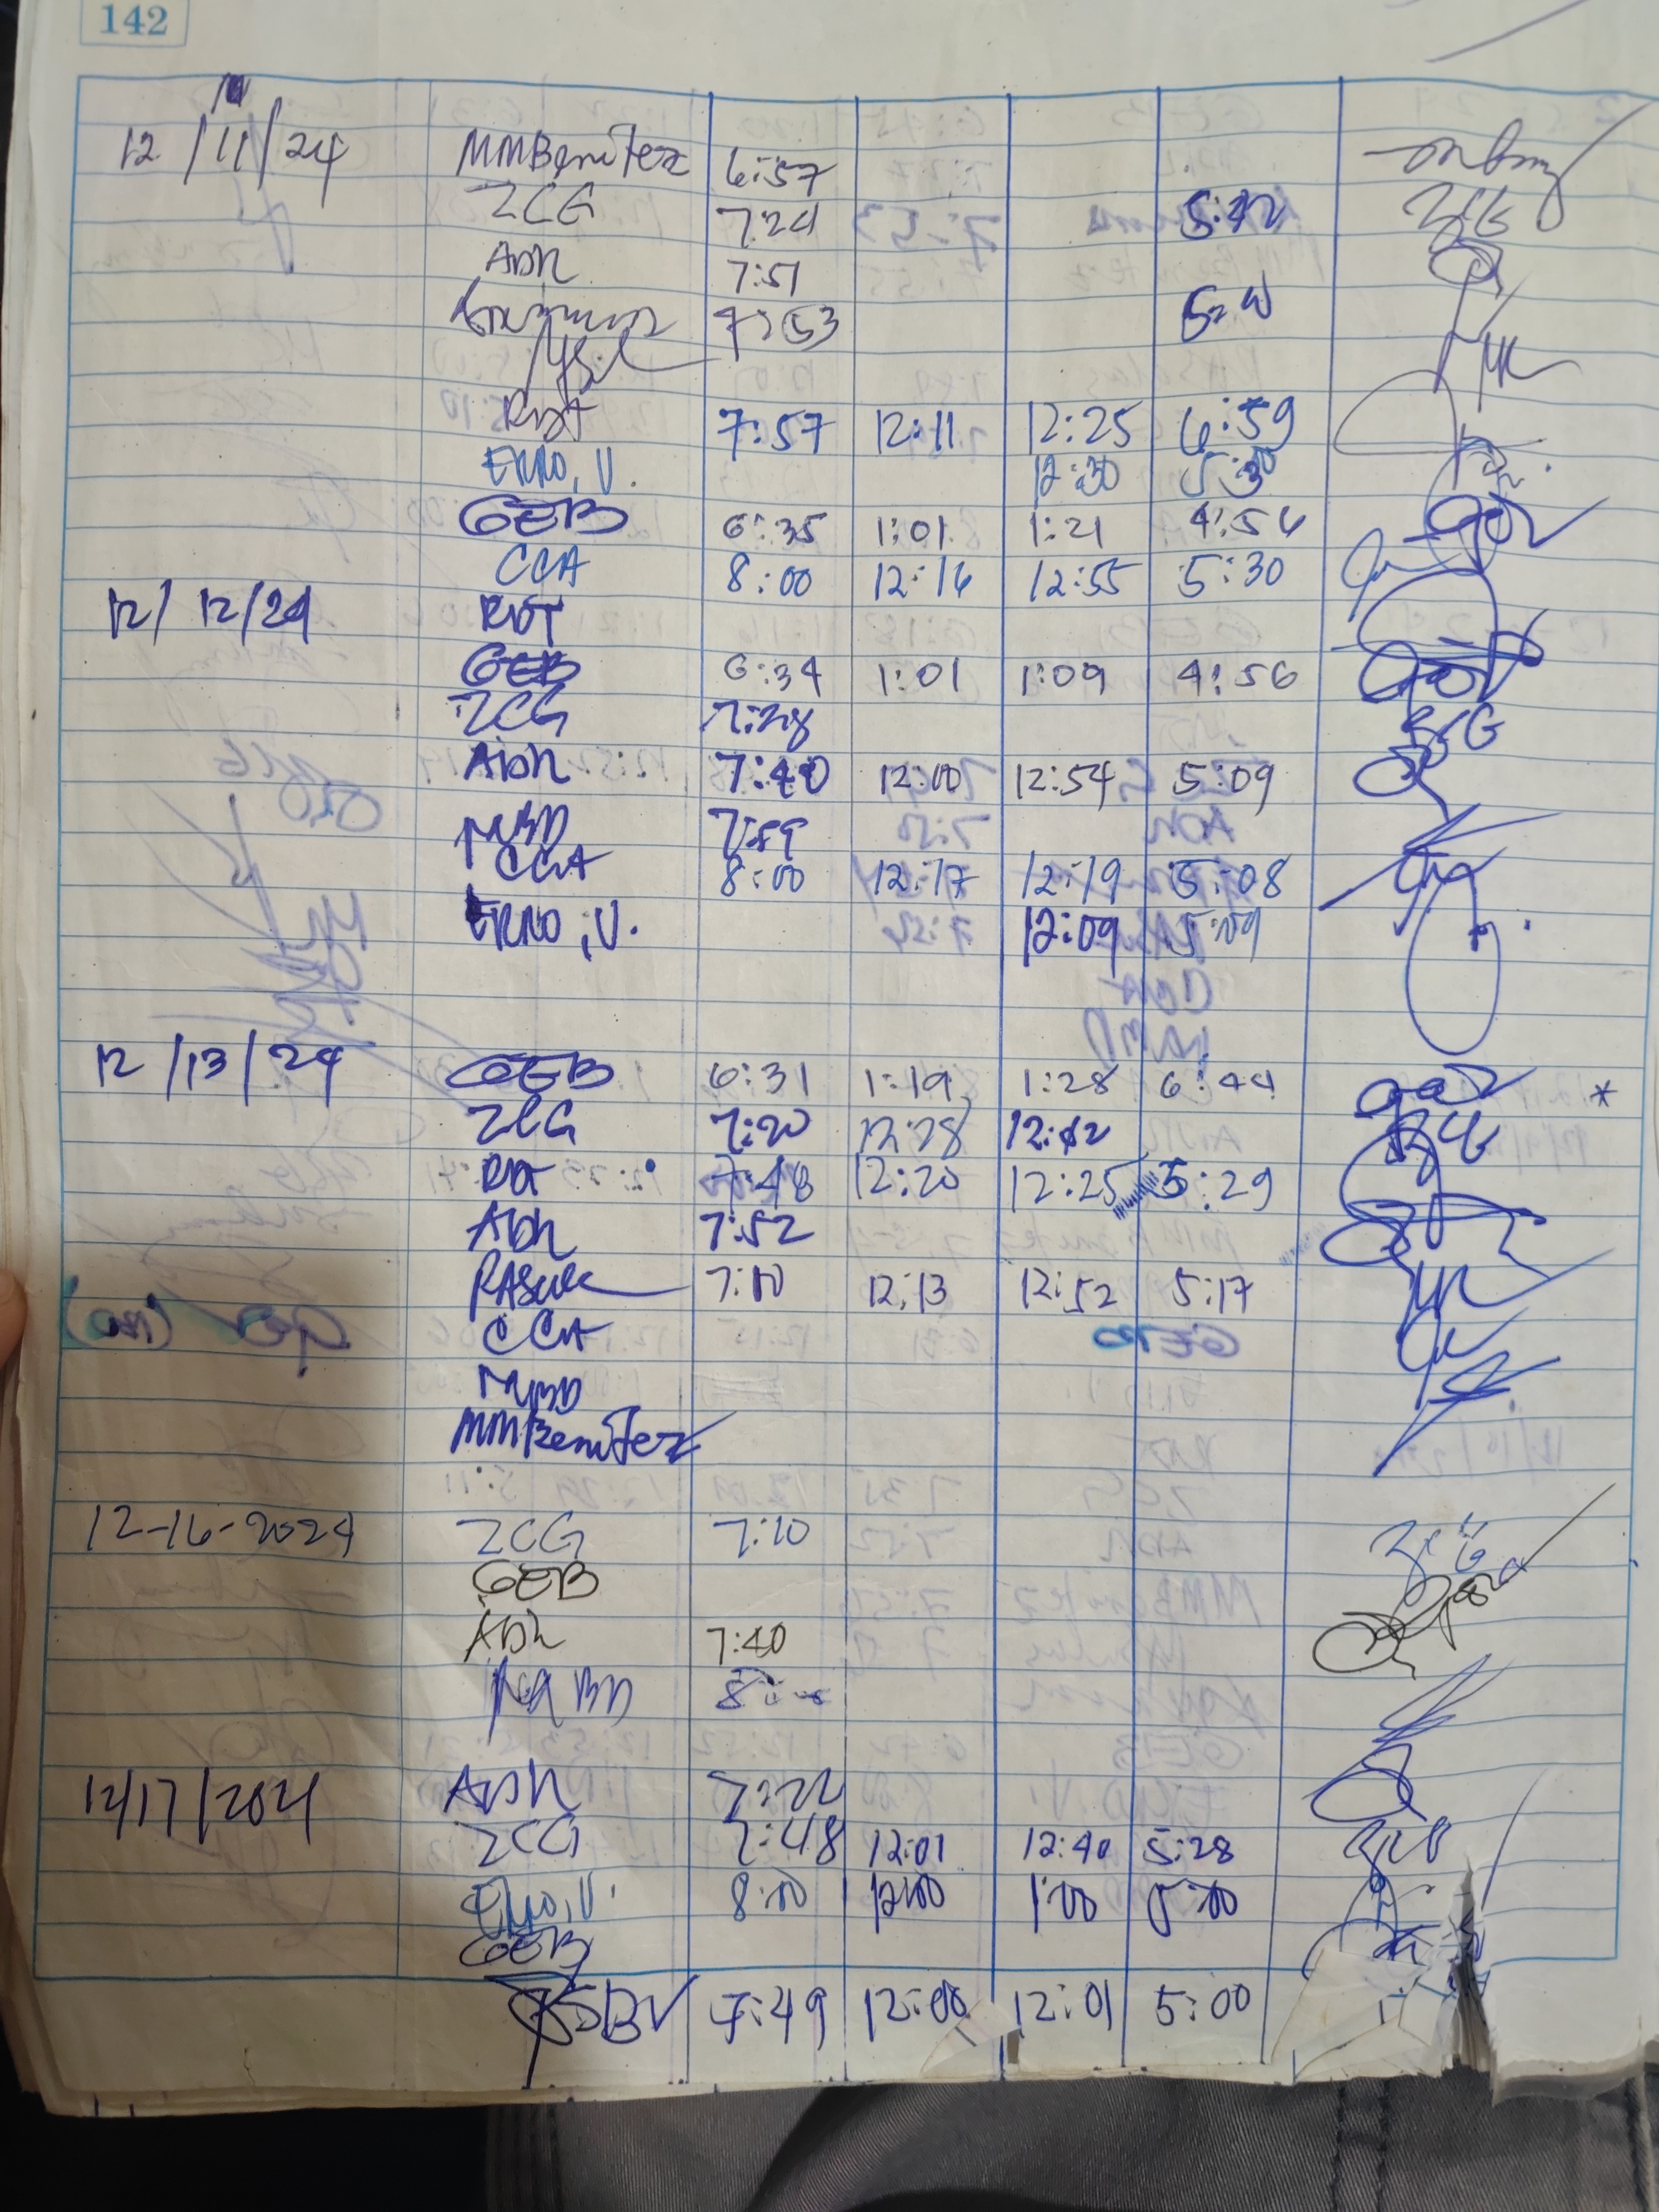 142
12/11/24 MMBenitez 6:57
ZCG 7:24 5:42
ADR 7:51
7:53
RDT 7:57 12:11 12:25 6:59
ERNO, V. 12:30 5:30
GEB 6:35 1:01 1:21 4:56
CCA 8:00 12:16 12:55 5:30
12/12/24 RDT
GEB 6:34 1:01 1:09 4:56
ZCG 7:28
ADR 7:40 12:00 12:54 5:09
MBD 7:59
CCA 8:00 12:17 12:19 5:08
ERNO, V. 12:09 5:09
12/13/24 GEB 6:31 1:19 1:28 6:44 *
ZCG 7:20 12:28 12:42
RDT 7:48 12:20 12:25 5:29
ADR 7:52
7:10 12:13 12:52 5:17
CCA
MBD
MMBenitez
12-16-2024 ZCG 7:10
GEB
ADR 7:40
8:00
12/17/2024 ADR 7:22
ZCG 7:48 12:01 12:40 5:28
8:00 12:00 1:00 5:00
GEB
7:49 12:00 12:01 5:00